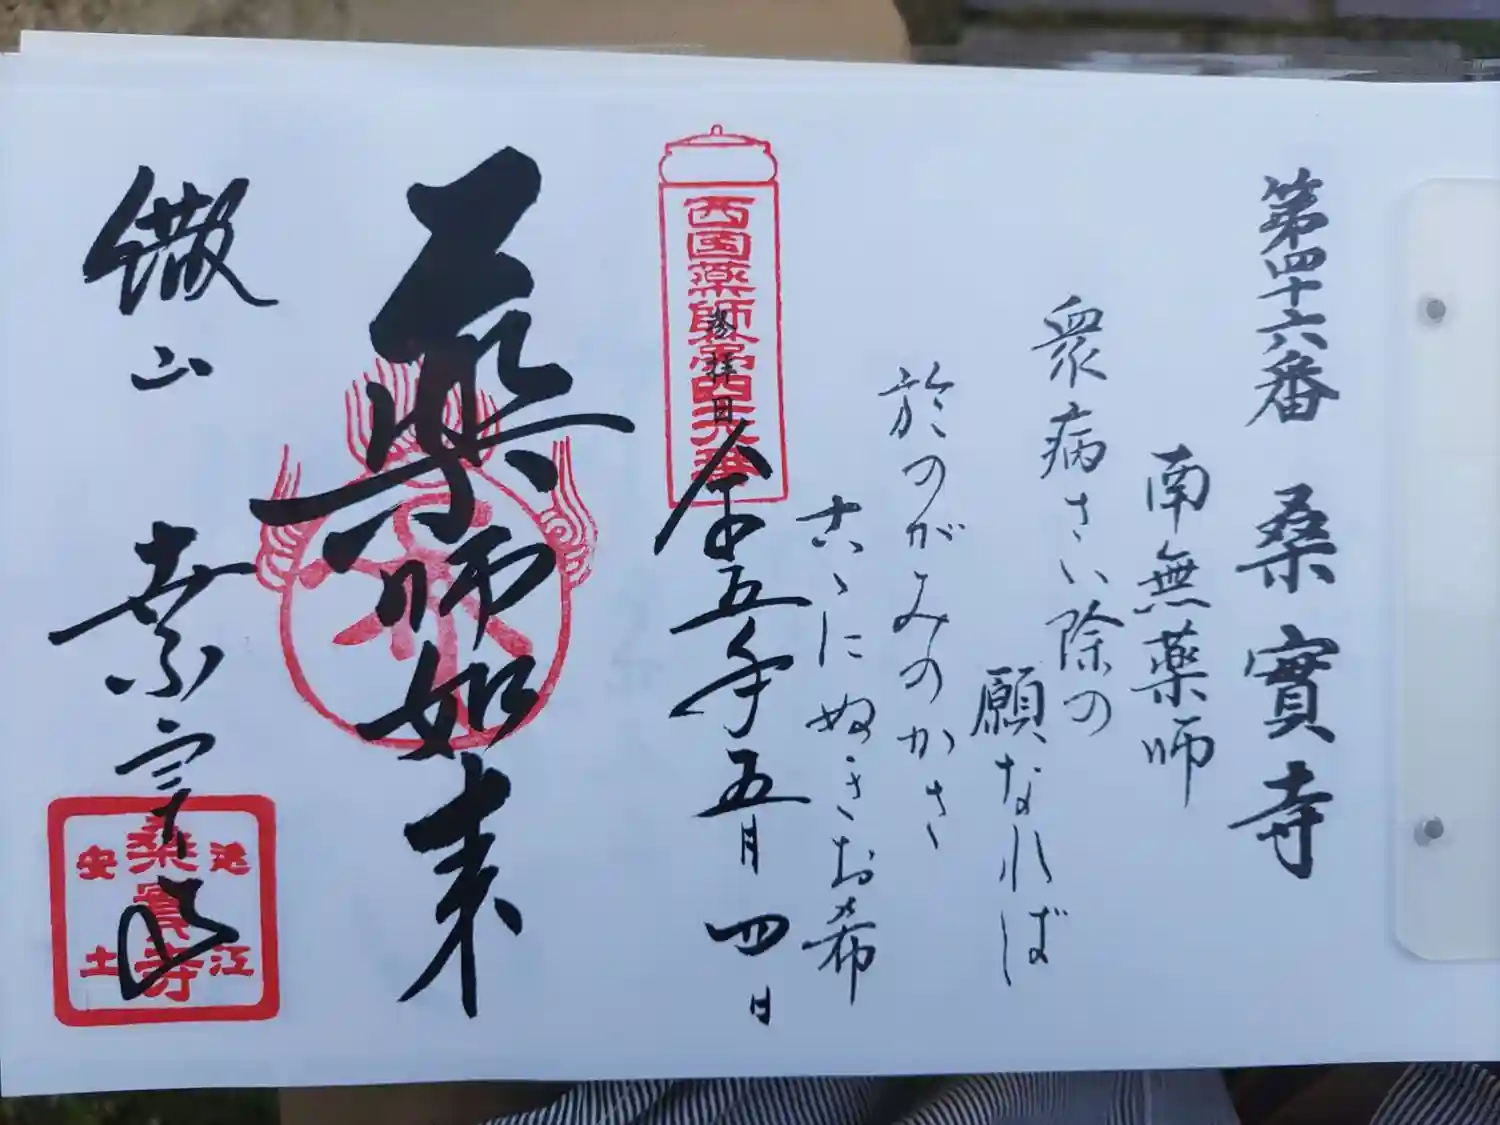 第四十六番 桑實寺
南無薬師
衆病さい除の
願なれば
於のがみのかさ
古ゝにぬきお希
西国薬師第四十六番
参拝日
令和五年五月四日
薬師如来
繖山
桑実寺
近江
桑實寺
安土